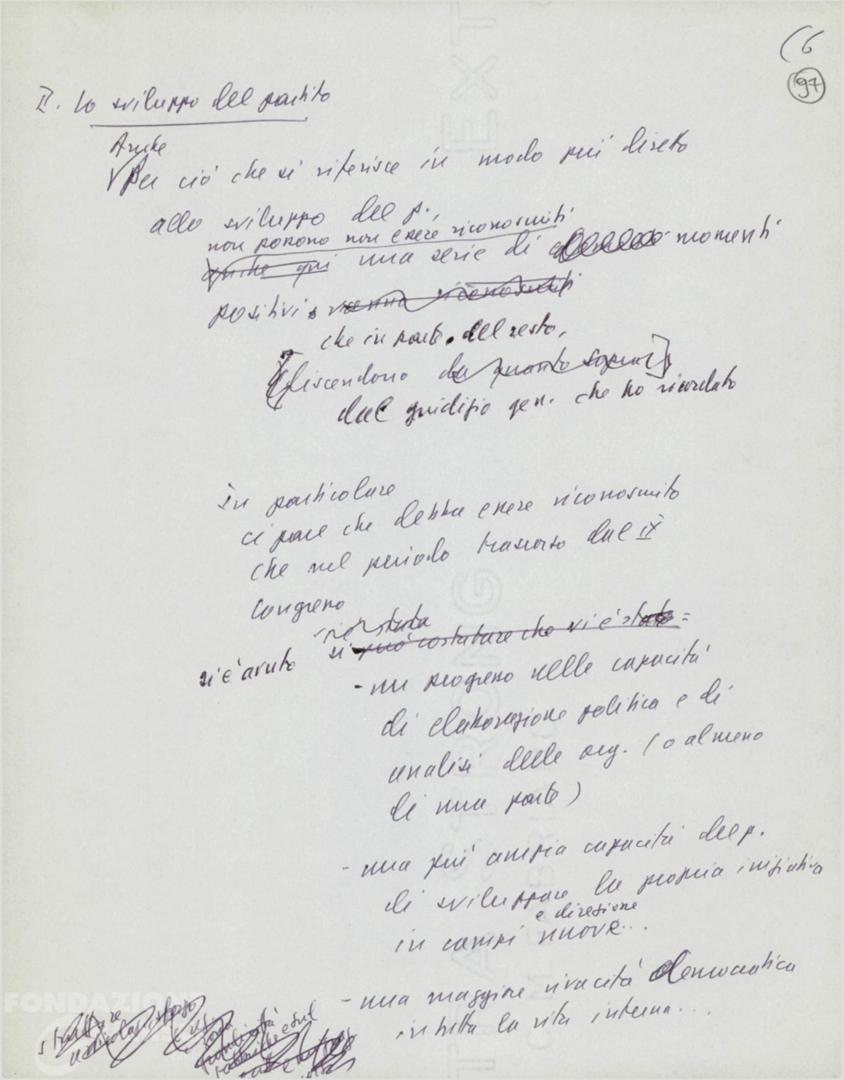 6
97
II. Lo sviluppo del partito
Anche
Per ciò che si riferisce in modo più diretto
allo sviluppo del p.,
non possono non essere riconosciuti
anche qui una serie di momenti
positivi vanno riconosciuti
che in parte, del resto,
discendono da quanto sopra
dal giudizio gen. che ho ricordato
In particolare
ci pare che debba essere riconosciuto
che nel periodo trascorso dal IX
Congresso
vi è stata
si è avuto si può constatare che vi è stato =
- un progresso nelle capacità
di elaborazione politica e di
analisi delle org. (o almeno
di una parte)
- una più ampia capacità del p.
di sviluppare la propria iniziativa
e direzione
in campi nuovi...
- una maggiore vivacità democratica
in tutta la vita interna...
FONDAZIONE